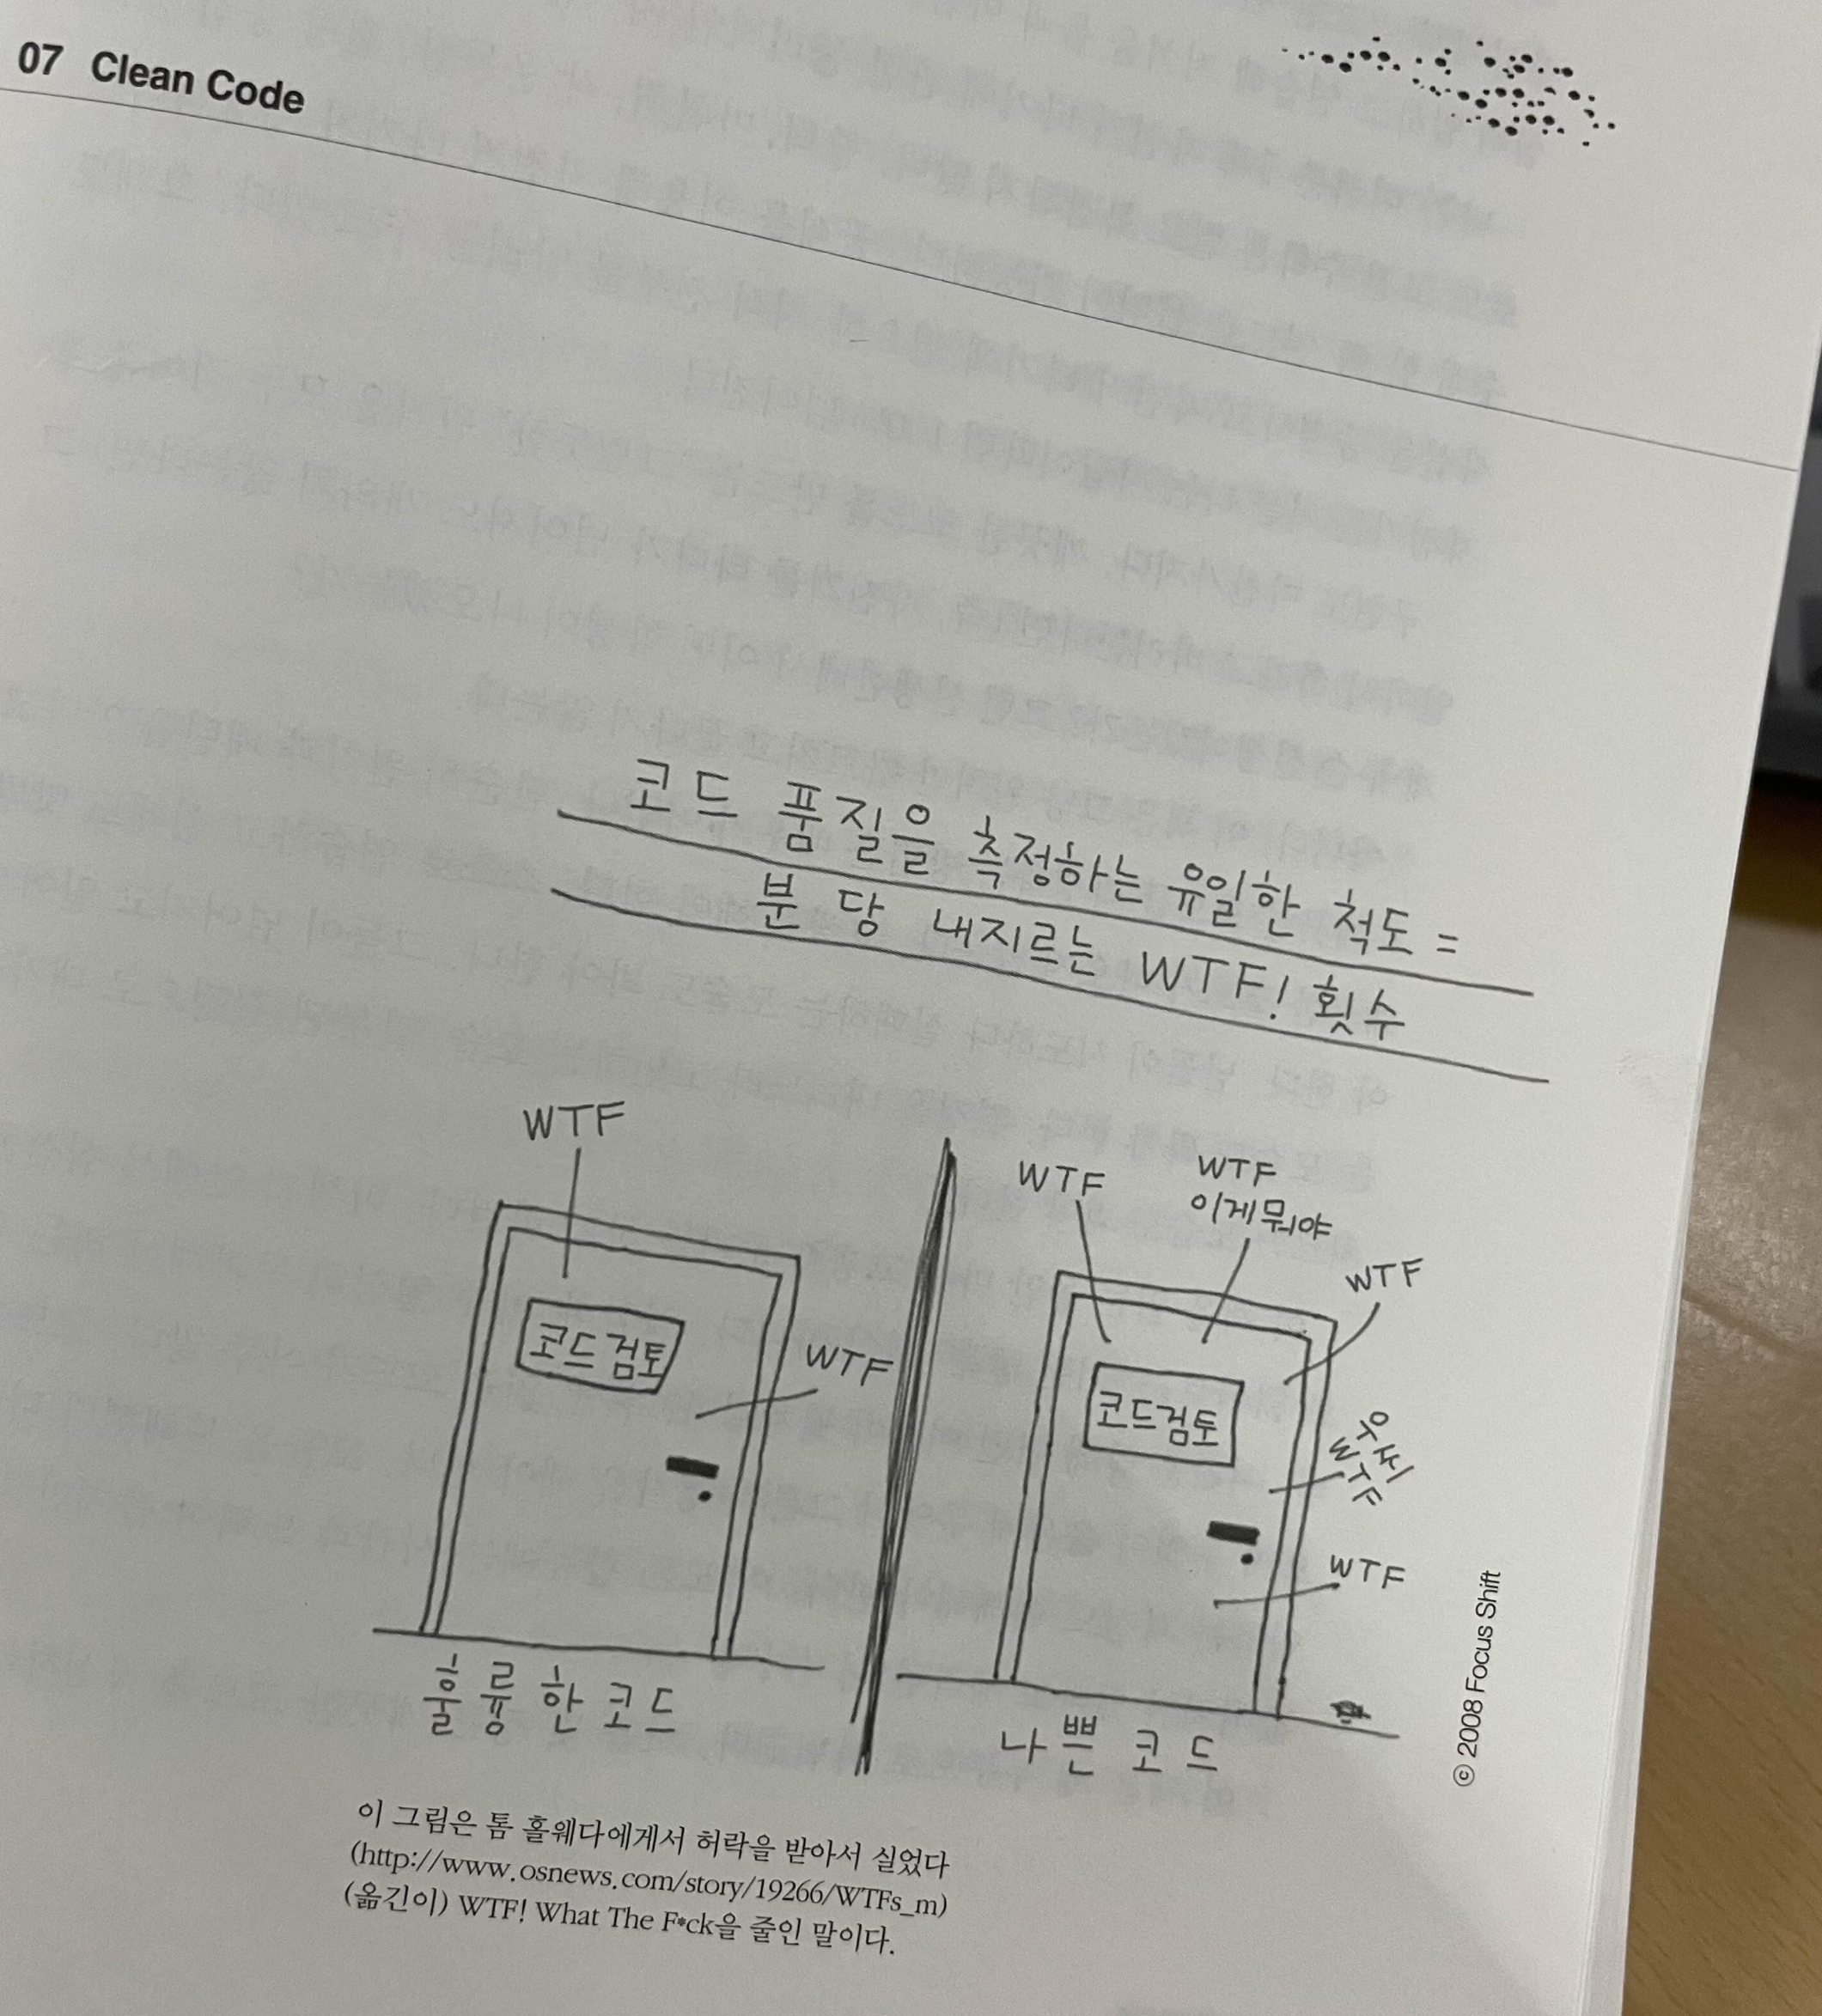 07 Clean Code
코드 품질을 측정하는 유일한 척도 =
분 당 내지르는 WTF! 횟수
WTF
코드 검토
WTF
훌륭한 코드
WTF
WTF
이게뭐야
WTF
코드검토
우씨
WTF
WTF
나쁜 코드
ⓒ 2008 Focus Shift
이 그림은 톰 홀웨다에게서 허락을 받아서 실었다
(http://www.osnews.com/story/19266/WTFs_m)
(옮긴이) WTF! What The F*ck을 줄인 말이다.